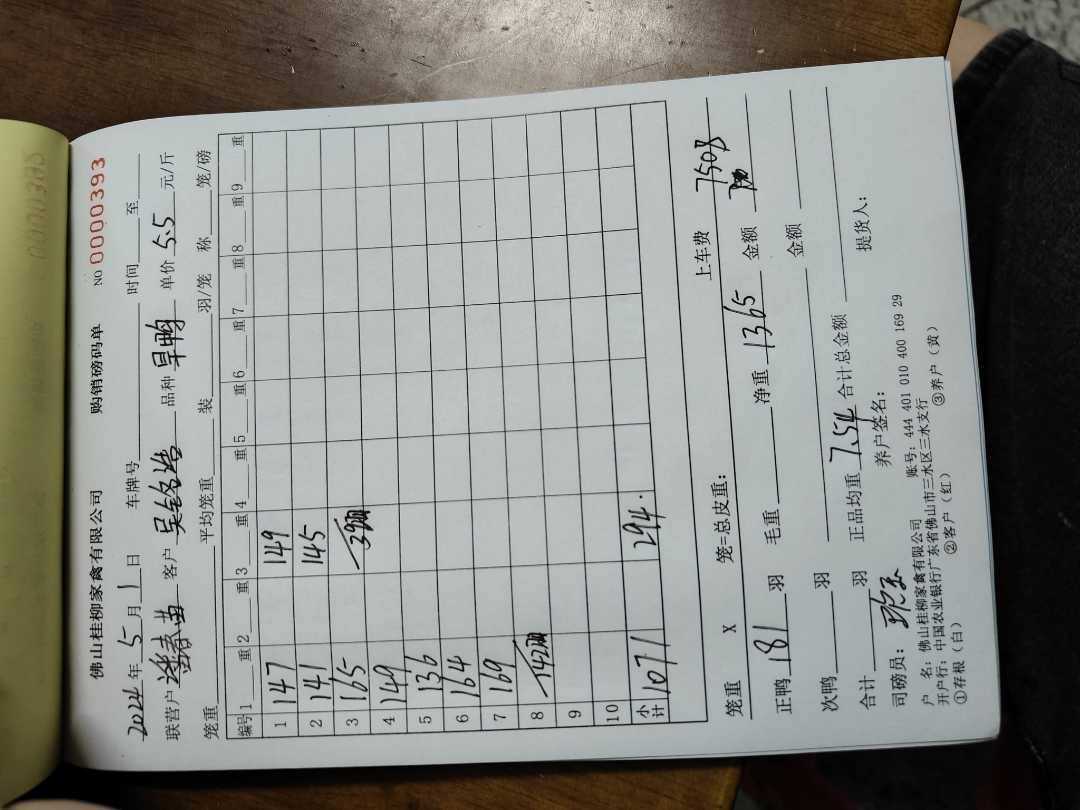 佛山桂柳家禽有限公司 购销磅码单 NO 0000393
2024年5月1日 车牌号 时间 至
联营户 客户 吴铭浩 品种 旱鸭 单价 5.5 元/斤
笼重 平均笼重 装 羽/笼 称 笼/磅
编号 1 重 2 重 3 重 4 重 5 重 6 重 7 重 8 重 9 重
1 147 149
2 141 145
3 165 39羽
4 149
5 136
6 164
7 169
8 142羽
9
10
小计 1071 294.
笼重 X 笼=总皮重: 上车费
正鸭 181 羽 毛重 净重 1365 金额 7508
次鸭 羽 金额
合计 羽 正品均重 7.54 合计总金额
司磅员: 养户签名: 提货人:
户 名: 佛山桂柳家禽有限公司 账号: 444 401 010 400 169 29
开户行: 中国农业银行广东省佛山市三水区三水支行
①存根(白) ②客户(红) ③养户(黄)